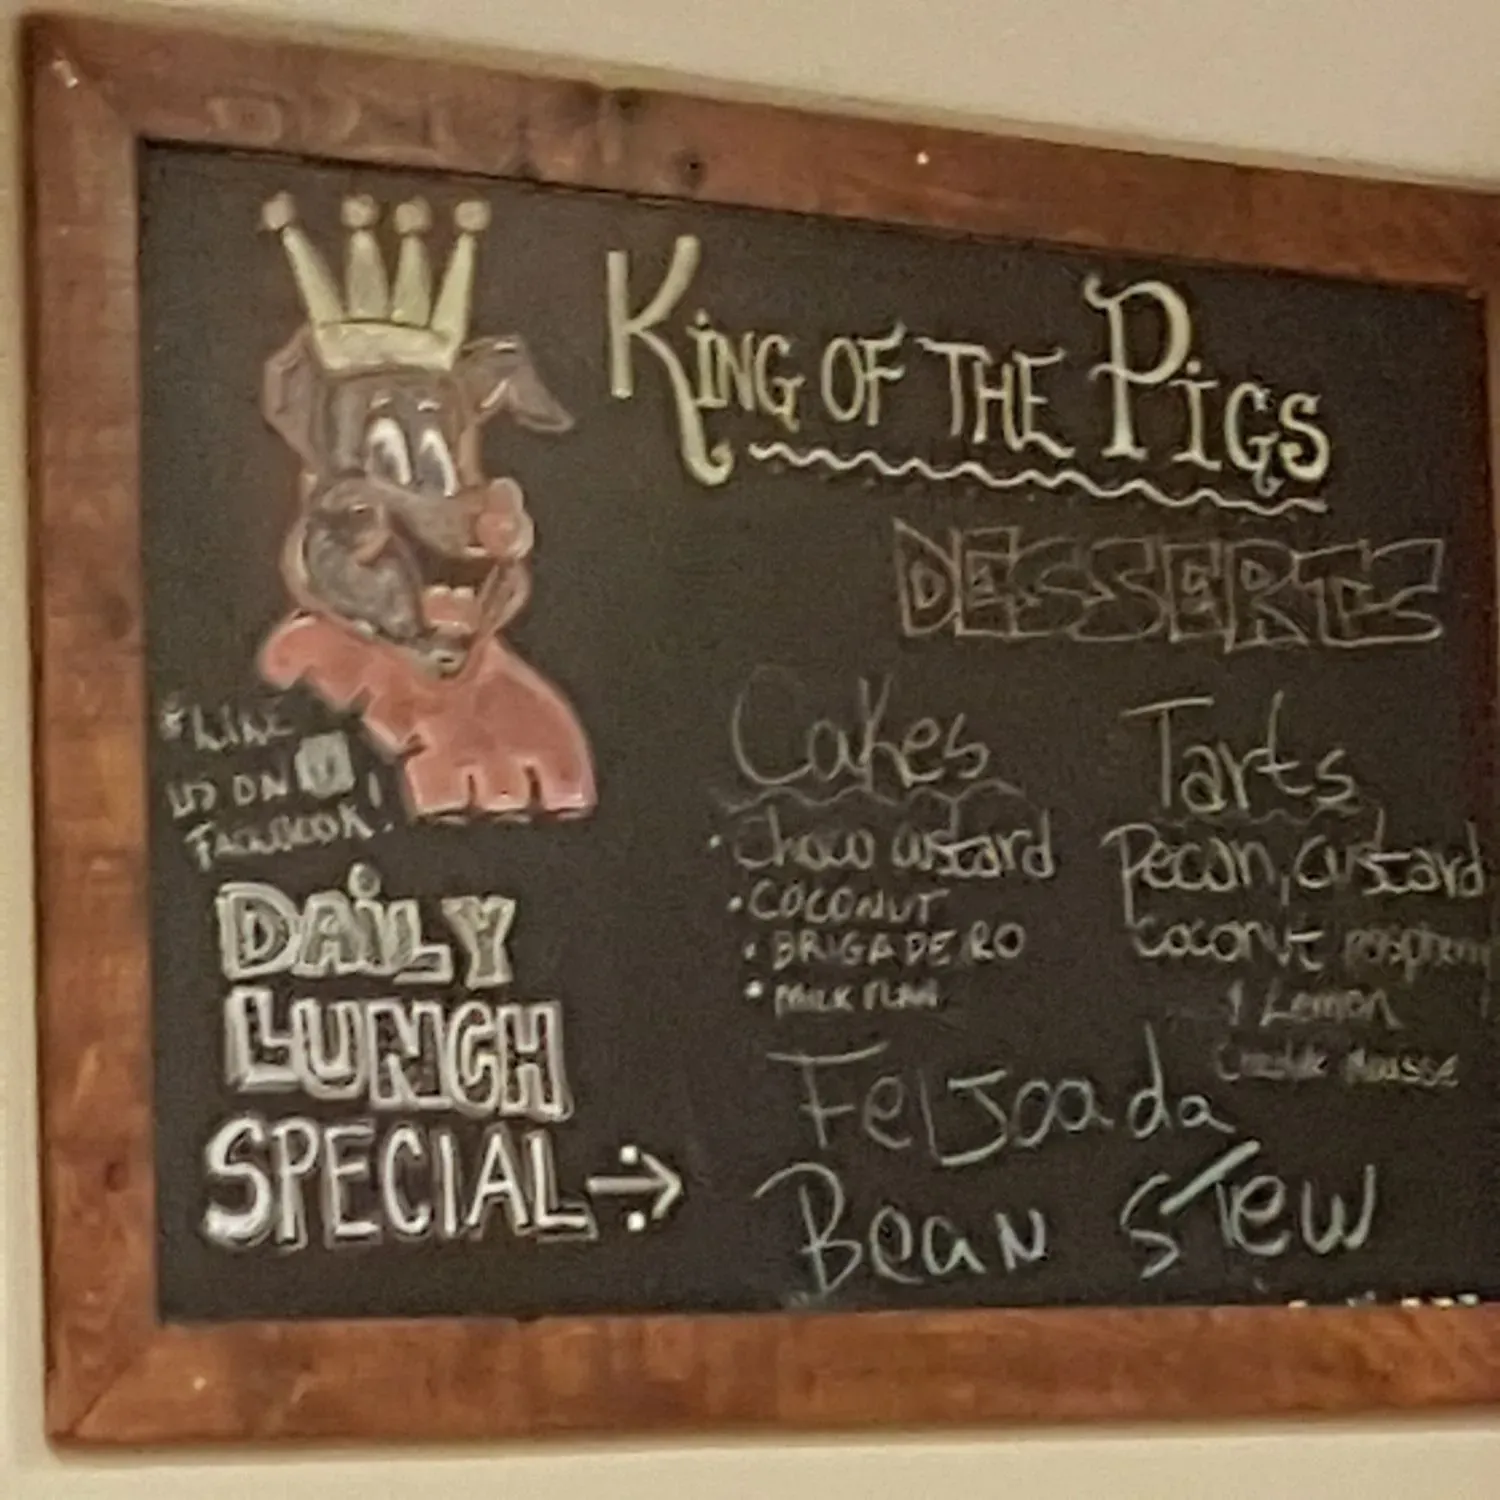 KiNG OF THE PiGS
DESSERTS
Cakes
• Choco custard
• COCONUT
• BRIGADEIRO
• MILK FLAN
Tarts
Pecan, Custard
Coconut raspberry
& Lemon
Mousse
*LIKE
US ON
FACEBOOK!
DAiLY
LUNCH
SPECIAL →
FeiJoada
Bean STew